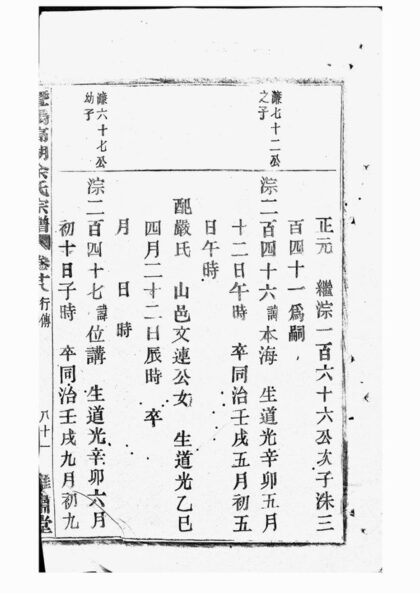 正元 繼淙一百六十六公次子洙三
百四十一爲嗣
濂七十二公
之子
淙二百四十六諱本海 生道光辛卯五月
十二日午時 卒同治壬戌五月初五
日午時
配嚴氏 山邑文連公女 生道光乙巳
四月二十二日辰時 卒
月 日 時
濂六十七公
幼子
淙二百四十七諱位講 生道光辛卯六月
初十日子時 卒同治壬戌九月初九
高湖余氏宗譜 行傳 八十一 堂